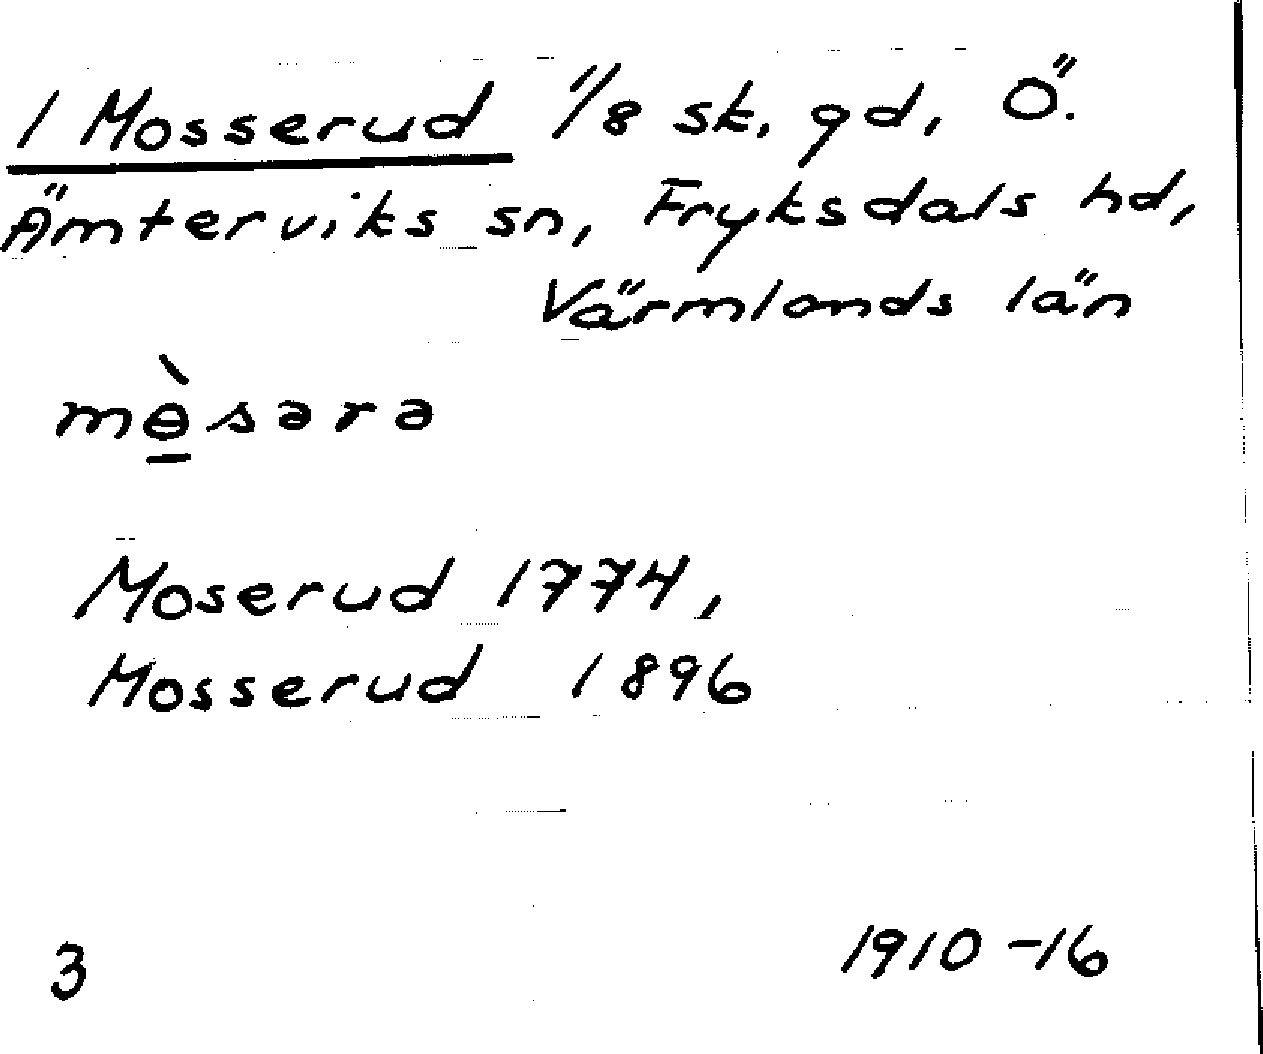 1 Mosserud 1/8 sk. gd, Ö.
Ämterviks sn, Fryksdals hd,
Värmlands län
mɵ̠̀sərə
Moserud 1774,
Mosserud 1896
3
1910-16